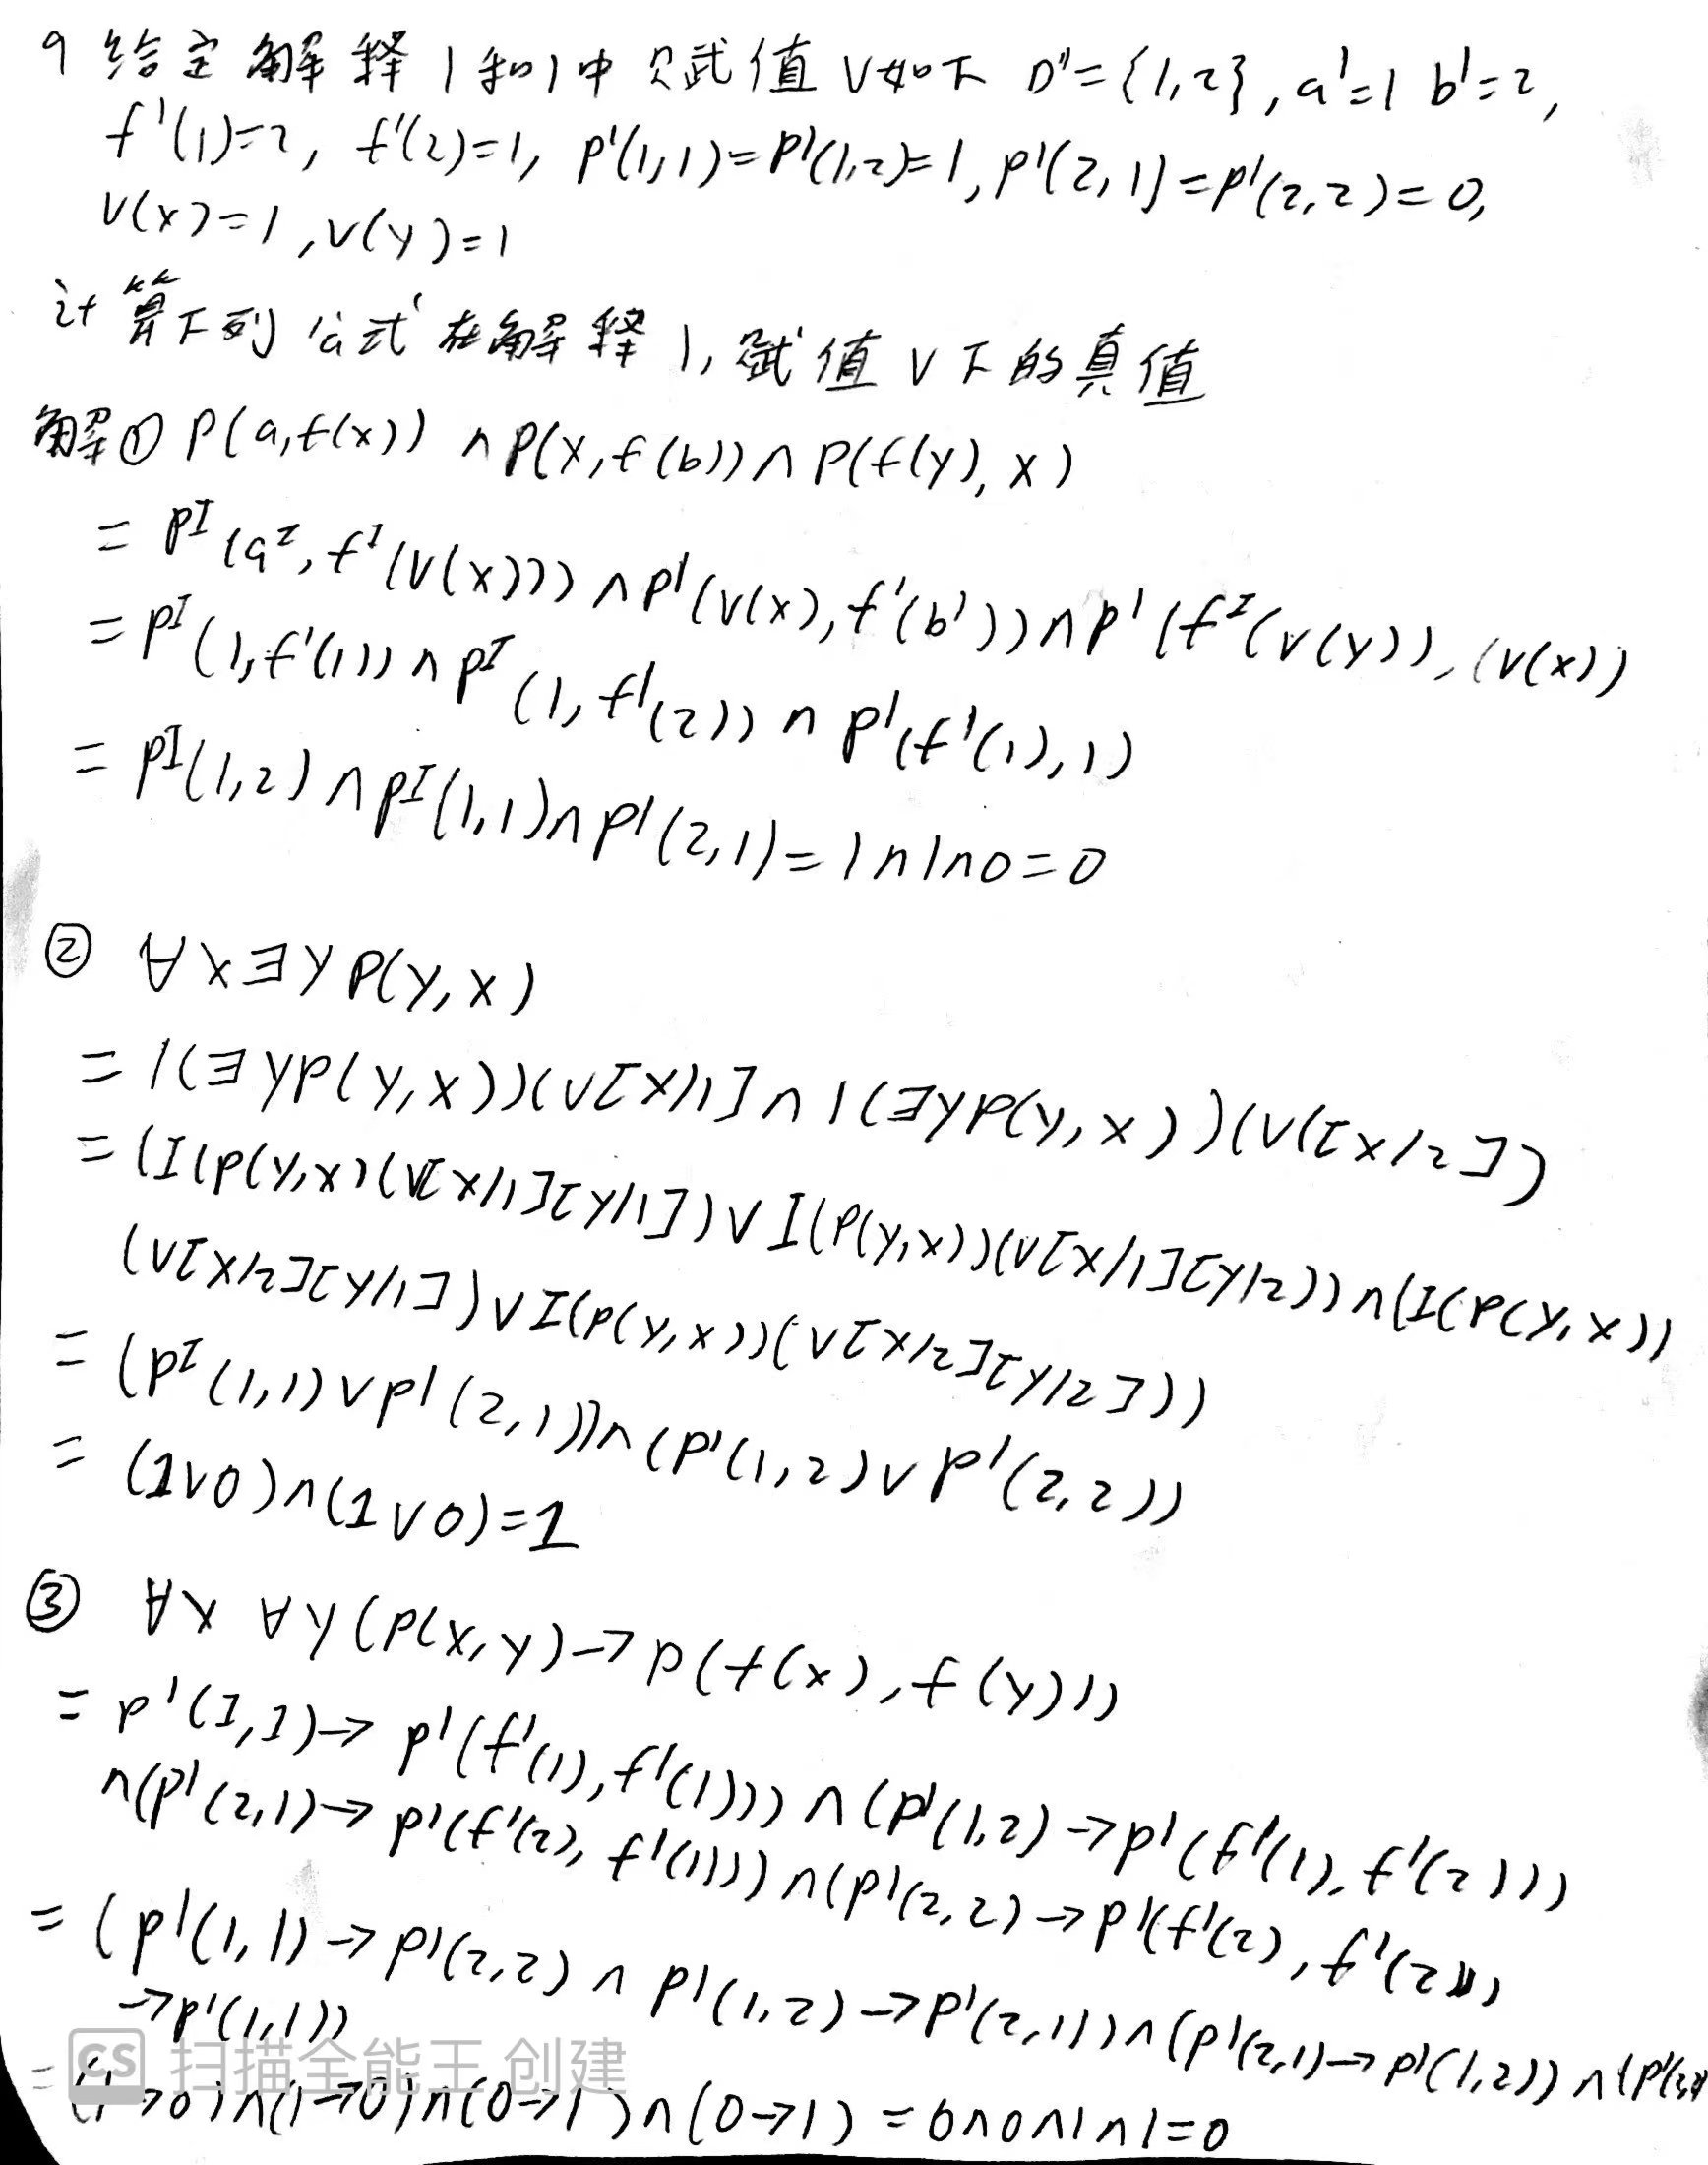 9 给定解释I和I中赋值v如下 D'={1,2}, a'=1 b'=2,
f'(1)=2, f'(2)=1, p'(1,1)=p'(1,2)=1, p'(2,1)=p'(2,2)=0,
v(x)=1, v(y)=1
计算下列公式在解释I, 赋值v下的真值
解① P(a,f(x)) ∧ P(x,f(b)) ∧ P(f(y), x)
= P^I(a^I, f^I(v(x))) ∧ p'(v(x), f'(b')) ∧ p'(f^I(v(y)), (v(x))
= P^I(1,f'(1)) ∧ P^I(1,f'(2)) ∧ p'(f'(1),1)
= P^I(1,2) ∧ P^I(1,1) ∧ p'(2,1) = 1∧1∧0 = 0
② ∀x∃yP(y,x)
= I(∃yP(y,x))(v[x/1] ∧ I(∃yP(y,x))(v([x/2])
= (I(P(y,x)(v[x/1][y/1]) ∨ I(P(y,x))(v[x/1][y/2)) ∧ (I(P(y,x))
(v[x/2][y/1]) ∨ I(P(y,x))(v[x/2][y/2]))
= (P^I(1,1) ∨ p'(2,1)) ∧ (p'(1,2) ∨ p'(2,2))
= (1∨0)∧(1∨0)=1
③ ∀x ∀y (P(x,y) → P(f(x), f(y)))
= p'(1,1) → p'(f'(1), f'(1))) ∧ (p'(1,2) → p'(f'(1), f'(2)))
∧(p'(2,1) → p'(f'(2), f'(1))) ∧ (p'(2,2) → p'(f'(2), f'(2)))
= (p'(1,1) → p'(2,2) ∧ p'(1,2) → p'(2,1)) ∧ (p'(2,1) → p'(1,2)) ∧ (p'(2,2)
→p'(1,1))
= (1→0)∧(1→0)∧(0→1)∧(0→1) = 0∧0∧1∧1=0
CS 扫描全能王 创建